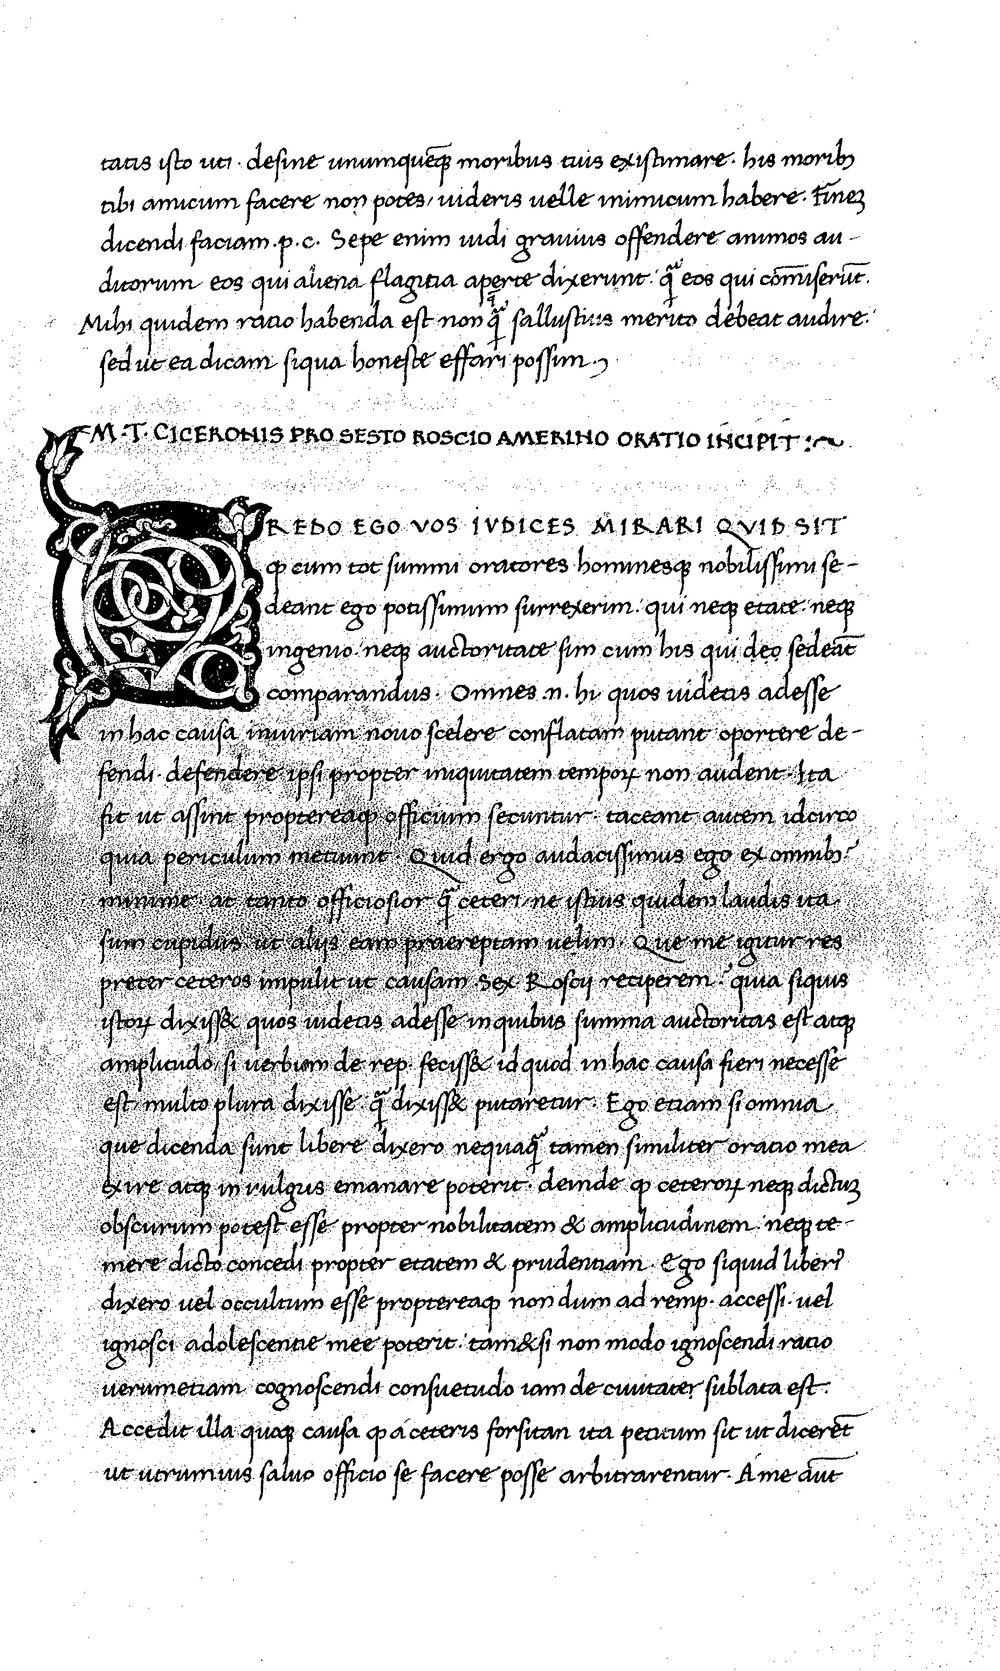 tatis isto uti · desine unumquēq̄ moribus tuis existimare · his morib₃
tibi amicum facere non potes, uideris uelle inimicum habere · Finē
dicendi faciam · p · c · Sepe enim uidi grauius offendere animos au-
ditorum eos qui aliena flagitia aperte dixerunt · q̄ eos qui cōmiserūt ·
Mihi quidem ratio habenda est non q̄ sallustius merito debeat audire ·
sed ut ea dicam siqua honeste effari possim ·
M · T · CICERONIS PRO SESTO ROSCIO AMERINO ORATIO INCIPIT :~
CREDO EGO VOS IVDICES MIRARI QVID SIT
ꝙ cum tot summi oratores hominesq₃ nobilissimi se-
deant ego potissimum surrexerim · qui neq₃ etate · neq₃
ingenio · neq₃ auctoritate sim cum his qui deo sedeāt
comparandus · Omnes · n · hi quos uidetis adesse
in hac causa iniuriam nouo scelere conflatam putant oportere de-
fendi · defendere ipsi propter iniquitatem tempoꝝ non audent · Ita
fit ut assint proptereaꝙ officium secuntur · taceant autem idcirco
quia periculum metuunt · Quid ergo audacissimus ego ex omnib₃?
minime · at tanto officiosior q̄ ceteri, ne istius quidem laudis ita
sum cupidus ut alijs eam praereptam uelim · Que me igitur res
preter ceteros impulit ut causam Sex Roscij reciperem? quia siquis
istoꝝ dixiss& quos uidetis adesse in quibus summa auctoritas est atq₃
amplitudo, si uerbum de rep · feciss& id quod in hac causa fieri necesse
est · multo plura dixisse · q̄ dixiss& putaretur · Ego etiam si omnia
que dicenda sunt libere dixero nequaq̄ tamen similiter oratio mea
exire atq₃ in vulgus emanare poterit · deinde ꝙ ceteroꝝ neq₃ dictuꝫ
obscurum potest esse propter nobilitatem & amplitudinem · neq₃ te-
mere dicto concedi propter etatem & prudentiam · Ego siquid liberi⁹
dixero uel occultum esse proptereaꝙ non dum ad remp · accessi · uel
ignosci adolescentie mee poterit · tam&si non modo ignoscendi ratio
uerumetiam cognoscendi consuetudo iam de ciuitate sublata est ·
Accedit illa quoq₃ causa ꝙ a ceteris forsitan ita petitum sit ut dicerēt
ut utrumuis saluo officio se facere posse arbitrarentur · A me aūt